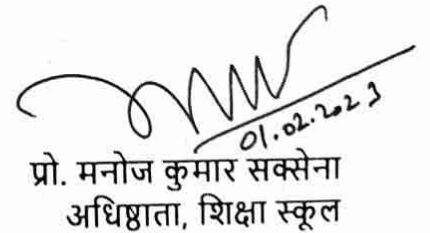 01.02.2023
प्रो. मनोज कुमार सक्सेना
अधिष्ठाता, शिक्षा स्कूल